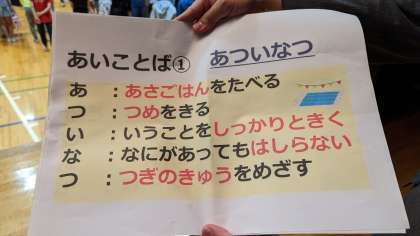 あいことば① あついなつ
あ：あさごはんをたべる
つ：つめをきる
い：いうことをしっかりときく
な：なにがあってもはしらない
つ：つぎのきゅうをめざす